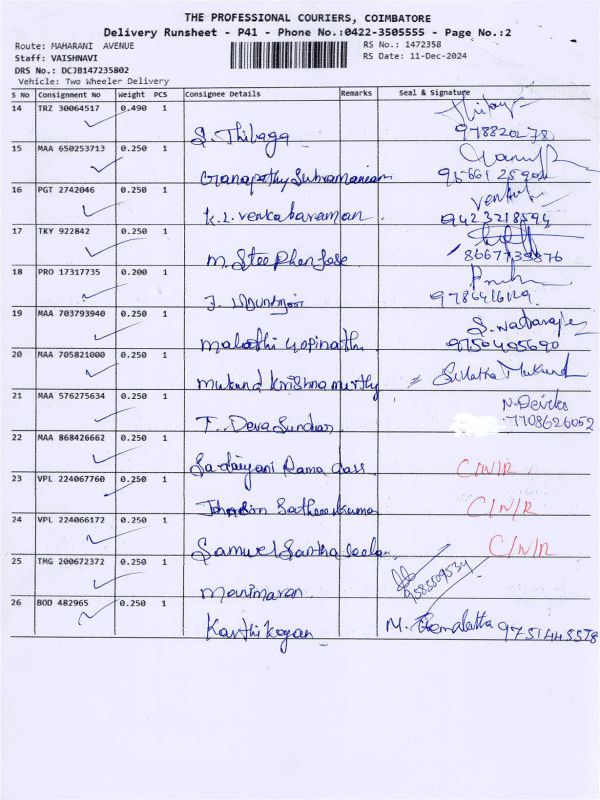 THE PROFESSIONAL COURIERS, COIMBATORE
Delivery Runsheet - P41 - Phone No.:0422-3505555 - Page No.:2
Route: MAHARANI AVENUE
RS No.: 1472358
Staff: VAISHNAVI
RS Date: 11-Dec-2024
DRS No.: DCJB147235802
Vehicle: Two Wheeler Delivery
S No Consignment No Weight PCS Consignee Details Remarks Seal & Signature
14 TRZ 30064517 0.490 1
S. Thibaga 978820278
15 MAA 650253713 0.250 1
Ganapathy Subramaniam
16 PGT 2742046 0.250 1
K.L. Venkataraman 9423218594
17 TKY 922842 0.250 1
M. Steephen Jose 8667739876
18 PRO 17317735 0.200 1
J. 9786416129
19 MAA 703793940 0.250 1 S. Natarajan
Malathi Gopinath 9750405690
20 MAA 705821000 0.250 1
Mukund Krishnamurthy Sulatha Mukund
21 MAA 576275634 0.250 1
T. Deva Sundar 7708626052
22 MAA 868426662 0.250 1
Rama dass C/N/R
23 VPL 224067760 0.250 1
C/N/R
24 VPL 224066172 0.250 1
Samuel C/N/R
25 TMG 200672372 0.250 1
Manimaran 9585509534
26 BOD 482965 0.250 1
Karthikeyan M. Hemalatha 9751445578